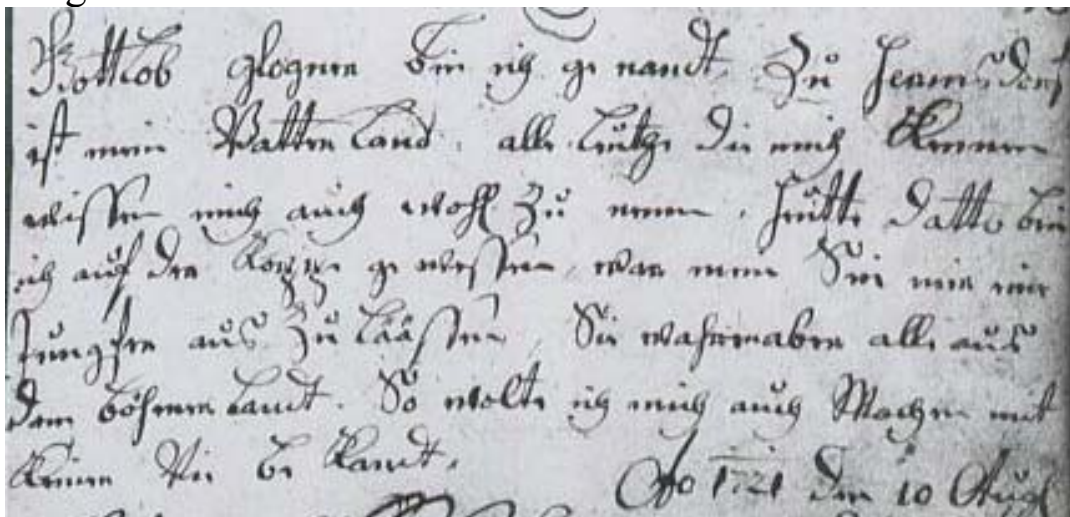 Gottlob glogner bin ich ge nandt, Zu Hermsdorf
ist mein Vatter Land. alle Leuthe die mich Kennen
wissen mich auch wohl Zu nennen. Heutte Datto bin
ich auf der Koppe ge wessen, war mein Sin mir eine
Jungfer aus Zu Läässen, Sie wahren aber alle aus
dem böhmer Landt. So wolte ich mich auch Machen mit
Keiner Nie be Kandt.
Ao 1721 den 10 Aug